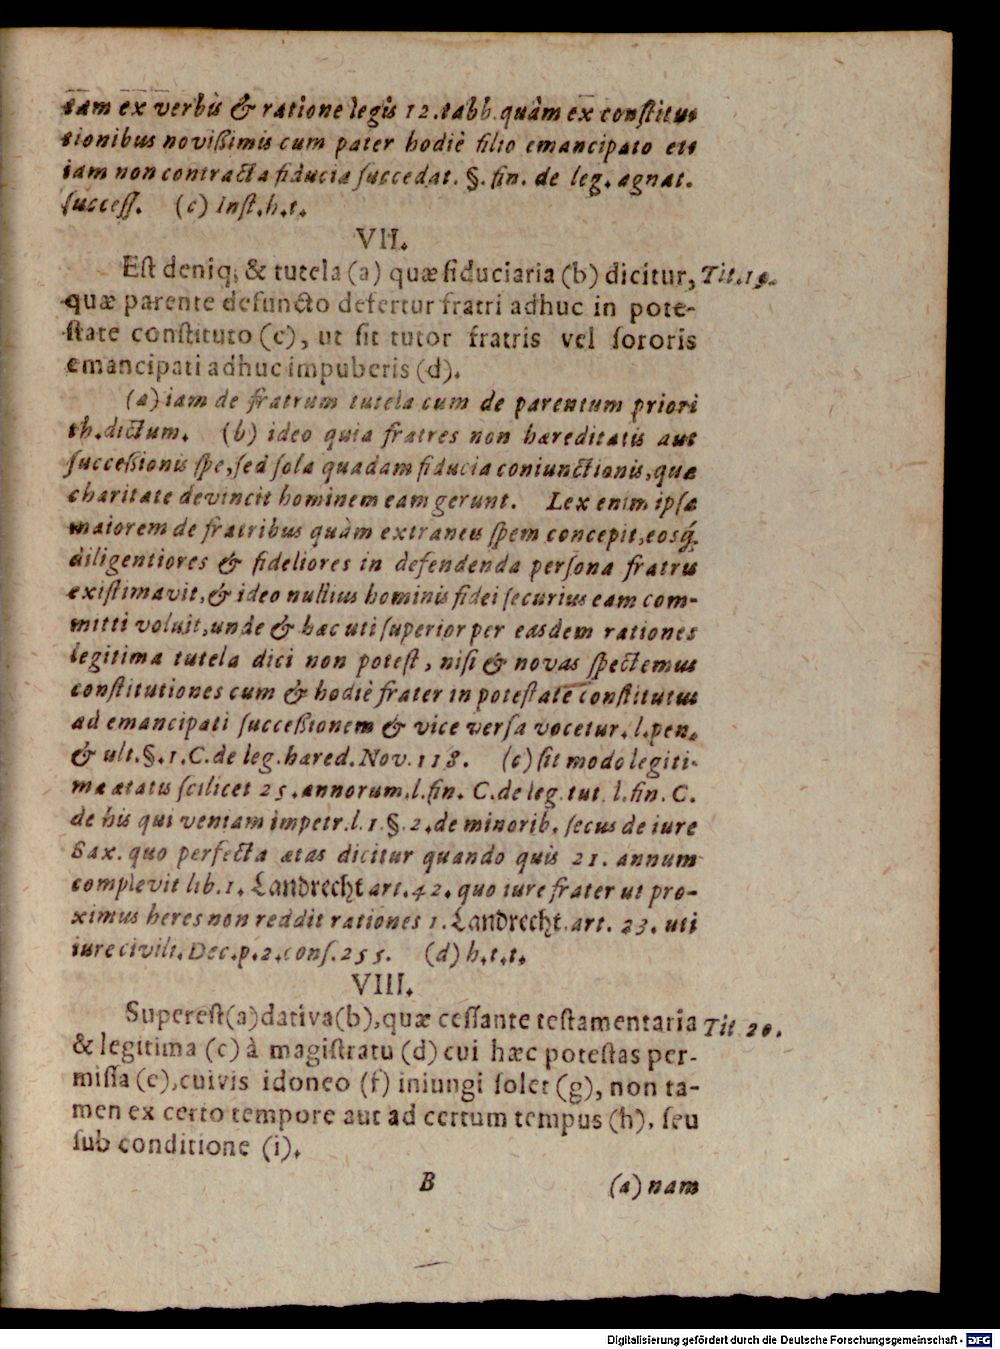 tam ex verbis & ratione legis 12. tabb. quàm ex constitu-
tionibus novißimis cum pater hodiè filio emancipato et-
iam non contracta fiducia succedat. §. fin. de leg. agnat.
success. (c) Inst. h. t.
VII.
Est deniq; & tutela (a) quæ fiduciaria (b) dicitur, Tit. 19.
quæ parente defuncto defertur fratri adhuc in pote-
state constituto (c), ut sit tutor fratris vel sororis
emancipati adhuc impuberis (d).
(a) iam de fratrum tutela cum de parentum priori
th. dictum. (b) ideo quia fratres non hæreditatis aut
succeßionis spe, sed sola quadam fiducia coniunctionis, quæ
charitate devincit hominem eam gerunt. Lex enim ipsa
maiorem de fratribus quàm extraneis spem concepit, eosq́;
diligentiores & fideliores in defendenda persona fratris
existimavit, & ideo nullius hominis fidei securius eam com-
mitti voluit, unde & hæc uti superior per easdem rationes
legitima tutela dici non potest, nisi & novas spectemus
constitutiones cum & hodiè frater in potestate constitutus
ad emancipati succeßionem & vice versa vocetur. l. pen.
& ult. §. 1. C. de leg. hæred. Nov. 118. (c) sit modo legiti-
mæ ætatis scilicet 25. annorum. l. fin. C. de leg. tut. l. fin. C.
de his qui veniam impetr. l. 1. §. 2. de minorib. secus de iure
Sax. quo perfecta ætas dicitur quando quis 21. annum
complevit lib. 1. Landrecht art. 42. quo iure frater ut pro-
ximus heres non reddit rationes 1. Landrecht. art. 23. uti
iure civili. Dec. p. 2. cons. 255. (d) h. t. t.
VIII.
Superest (a) dativa (b), quæ cessante testamentaria Tit 20.
& legitima (c) à magistratu (d) cui hæc potestas per-
missa (e), cuivis idoneo (f) iniungi solet (g), non ta-
men ex certo tempore aut ad certum tempus (h), seu
sub conditione (i).
B (a) nam
Digitalisierung gefördert durch die Deutsche Forschungsgemeinschaft - DFG